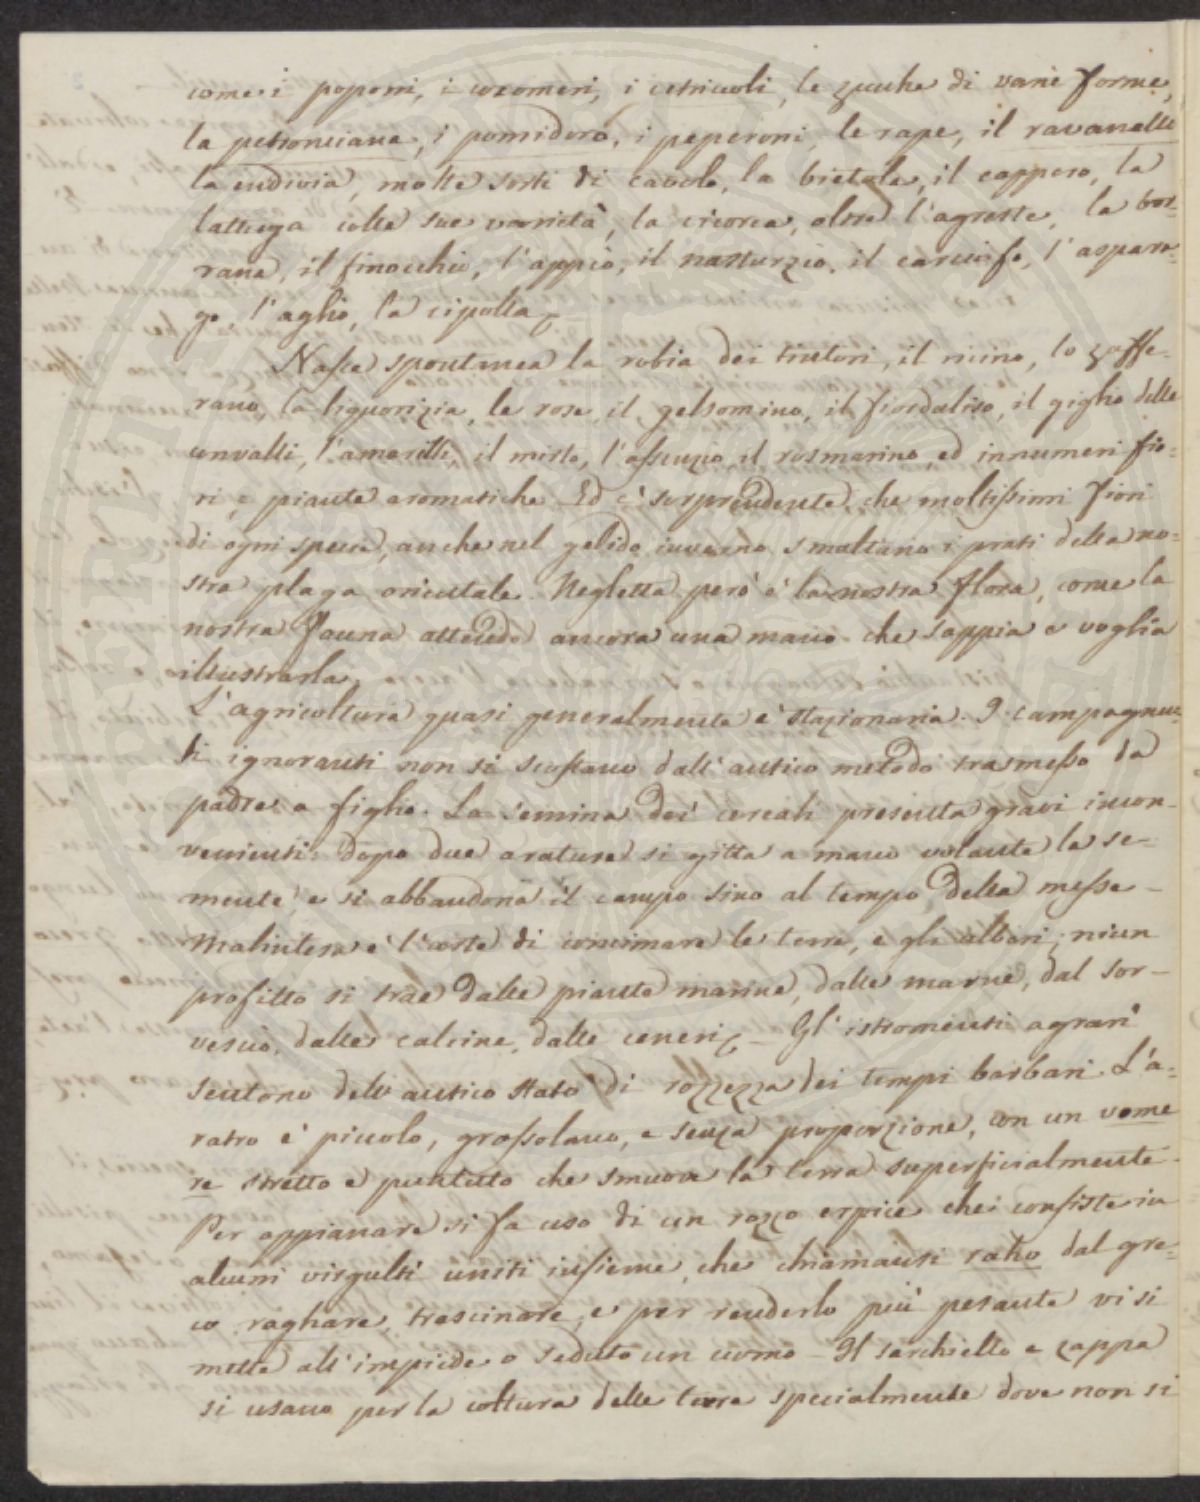 come i poponi, i cocomeri, i citriuoli, le zucche di varie forme,
la petronciana, i pomidoro, i peperoni, le rape, il ravanello
la endivia, molte sorti di cavolo, la bietola, il cappero, la
lattuga colle sue varietà, la cicorea, oltre l'agreste, la bor-
rana, il finocchio, l'appio, il nasturzio, il carciofo, l'aspara-
go, l'aglio, la cipolla
Nasce spontanea la robia dei tintori, il ricino, lo zaffe-
rano, la liquorizia, le rose, il gelsomino, il fiordaliso, il giglio delle
convalli, l'amarilli, il mirto, l'assenzio, il rosmarino, ed innumeri fio-
ri, e piante aromatiche. Ed è sorprendente, che moltissimi fiori
di ogni specie, anche nel gelido inverno smaltano i prati della no-
stra plaga orientale. Negletta però è la nostra flora, come la
nostra fauna attende ancora una mano che sappia e voglia
illustrarla.
L'agricoltura quasi generalmente è stazionaria. I campagnuo-
li ignoranti non si scostano dall'antico metodo trasmesso da
padre a figlio. La semina dei cereali presenta gravi incon-
venienti: dopo due arature si gitta a mano volante la se-
mente, e si abbandona il campo sino al tempo della messe –
Malintesa è l'arte di concimare le terre, e gli alberi; niun
profitto si trae dalle piante marine, dalle marne, dal sor-
vescio, dalle calcine, dalle ceneri – Gl'istromenti agrari
sentono dello antico stato di rozzezza dei tempi barbari. L'a-
ratro è piccolo, grossolano, e senza proporzione, con un vome
re stretto e puntuto che smuove la terra superficialmente.
Per appianare si fa uso di un rozzo erpice che consiste in
alcuni virgulti uniti insieme, che chiamansi raho dal gre-
co raghare, trascinare, e per renderlo più pesante vi si
mette all'impiede o seduto un uomo – Il sarchiello e zappa
si usano per la coltura delle terre specialmente dove non si